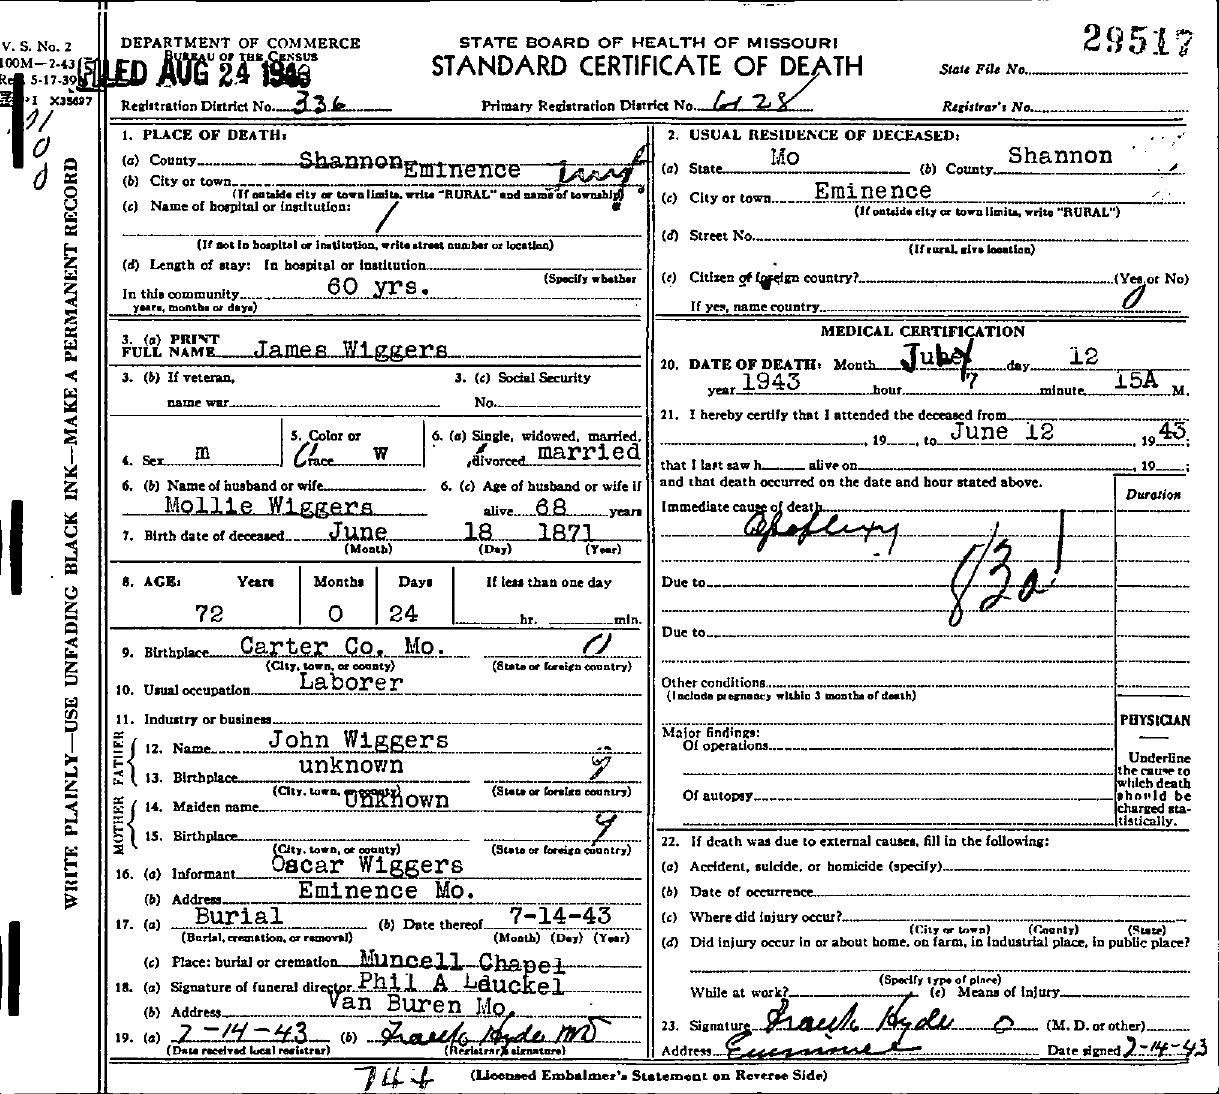 V. S. No. 2
100M—2-43
Rev. 5-17-39
I X35697
DEPARTMENT OF COMMERCE
BUREAU OF THE CENSUS
FILED AUG 24 1943
STATE BOARD OF HEALTH OF MISSOURI
STANDARD CERTIFICATE OF DEATH
29517
State File No.
Registration District No. 336
Primary Registration District No. 6128
Registrar's No.
WRITE PLAINLY—USE UNFADING BLACK INK—MAKE A PERMANENT RECORD
1. PLACE OF DEATH:
(a) County Shannon
(b) City or town Eminence twp
(If outside city or town limits, write "RURAL" and name of township)
(c) Name of hospital or institution:
(If not in hospital or institution, write street number or location)
(d) Length of stay: In hospital or institution
(Specify whether
In this community 60 yrs.
years, months or days)
3. (a) PRINT FULL NAME James Wiggers
3. (b) If veteran, name war
3. (c) Social Security No.
4. Sex m
5. Color or race W
6. (a) Single, widowed, married, divorced married
6. (b) Name of husband or wife
Mollie Wiggers
6. (c) Age of husband or wife if alive 68 years
7. Birth date of deceased June 18 1871
(Month) (Day) (Year)
8. AGE: Years Months Days If less than one day
72 0 24 hr. min.
9. Birthplace Carter Co. Mo. 0
(City, town, or county) (State or foreign country)
10. Usual occupation Laborer
11. Industry or business
FATHER
12. Name John Wiggers
13. Birthplace unknown 9
(City, town, or county) (State or foreign country)
MOTHER
14. Maiden name Unknown
15. Birthplace 9
(City, town, or county) (State or foreign country)
16. (a) Informant Oscar Wiggers
(b) Address Eminence Mo.
17. (a) Burial (b) Date thereof 7-14-43
(Burial, cremation, or removal) (Month) (Day) (Year)
(c) Place: burial or cremation Muncell Chapel
18. (a) Signature of funeral director Phil A Leuckel
(b) Address Van Buren Mo.
19. (a) 7-14-43 (b) Frank Hyde MD
(Date received local registrar) (Registrar's signature)
2. USUAL RESIDENCE OF DECEASED:
(a) State Mo (b) County Shannon
(c) City or town Eminence
(If outside city or town limits, write "RURAL")
(d) Street No.
(If rural, give location)
(e) Citizen of foreign country? (Yes or No)
If yes, name country 0
MEDICAL CERTIFICATION
20. DATE OF DEATH: Month July day 12
year 1943 hour 7 minute 15A M.
21. I hereby certify that I attended the deceased from
, 19 , to June 12 , 1943;
that I last saw h alive on , 19 ;
and that death occurred on the date and hour stated above.
Duration
Immediate cause of death
Apoplexy
83a
Due to
Due to
Other conditions
(Include pregnancy within 3 months of death)
Major findings:
Of operations
Of autopsy
PHYSICIAN
Underline
the cause to
which death
should be
charged sta-
tistically.
22. If death was due to external causes, fill in the following:
(a) Accident, suicide, or homicide (specify)
(b) Date of occurrence
(c) Where did injury occur?
(City or town) (County) (State)
(d) Did injury occur in or about home, on farm, in industrial place, in public place?
(Specify type of place)
While at work? (e) Means of injury
23. Signature Frank Hyde (M. D. or other)
Address Eminence Date signed 7-14-43
(Licensed Embalmer's Statement on Reverse Side)